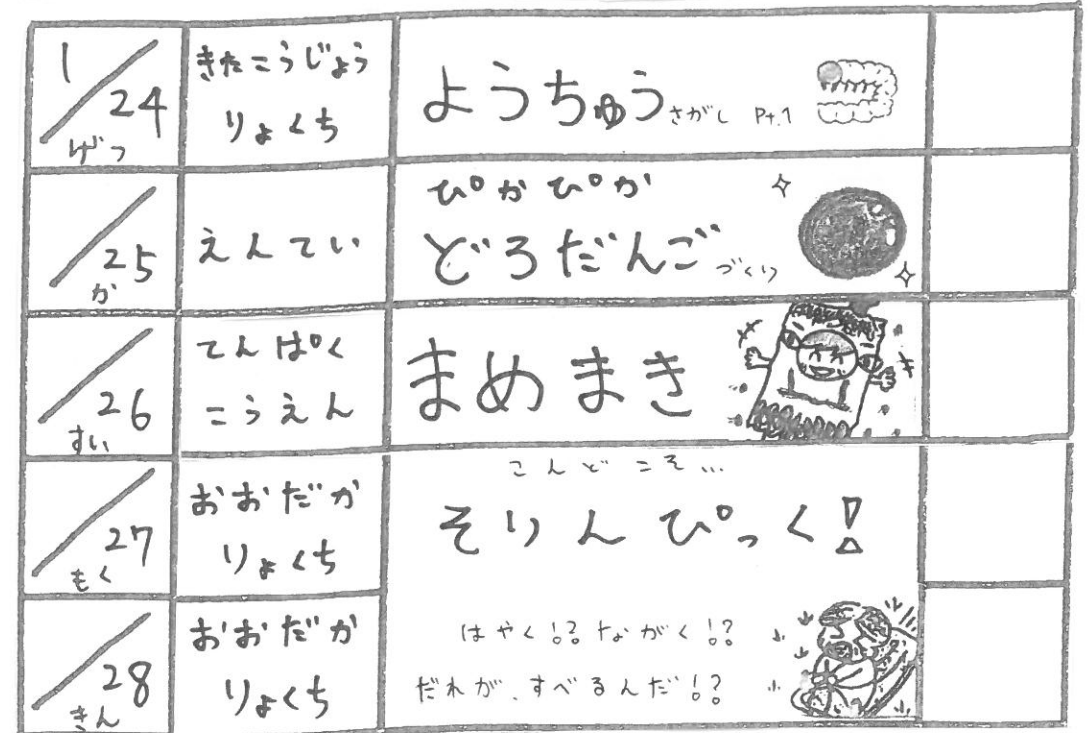 1/24
げつ
きたこうじょう
りょくち
ようちゅうさがし Pt.1
25
か
えんてい
ぴかぴか
どろだんごづくり
26
すい
てんぱく
こうえん
まめまき
27
もく
おおだか
りょくち
こんどこそ...
そりんぴっく!
28
きん
おおだか
りょくち
はやく!?ながく!?
だれが、すべるんだ!?